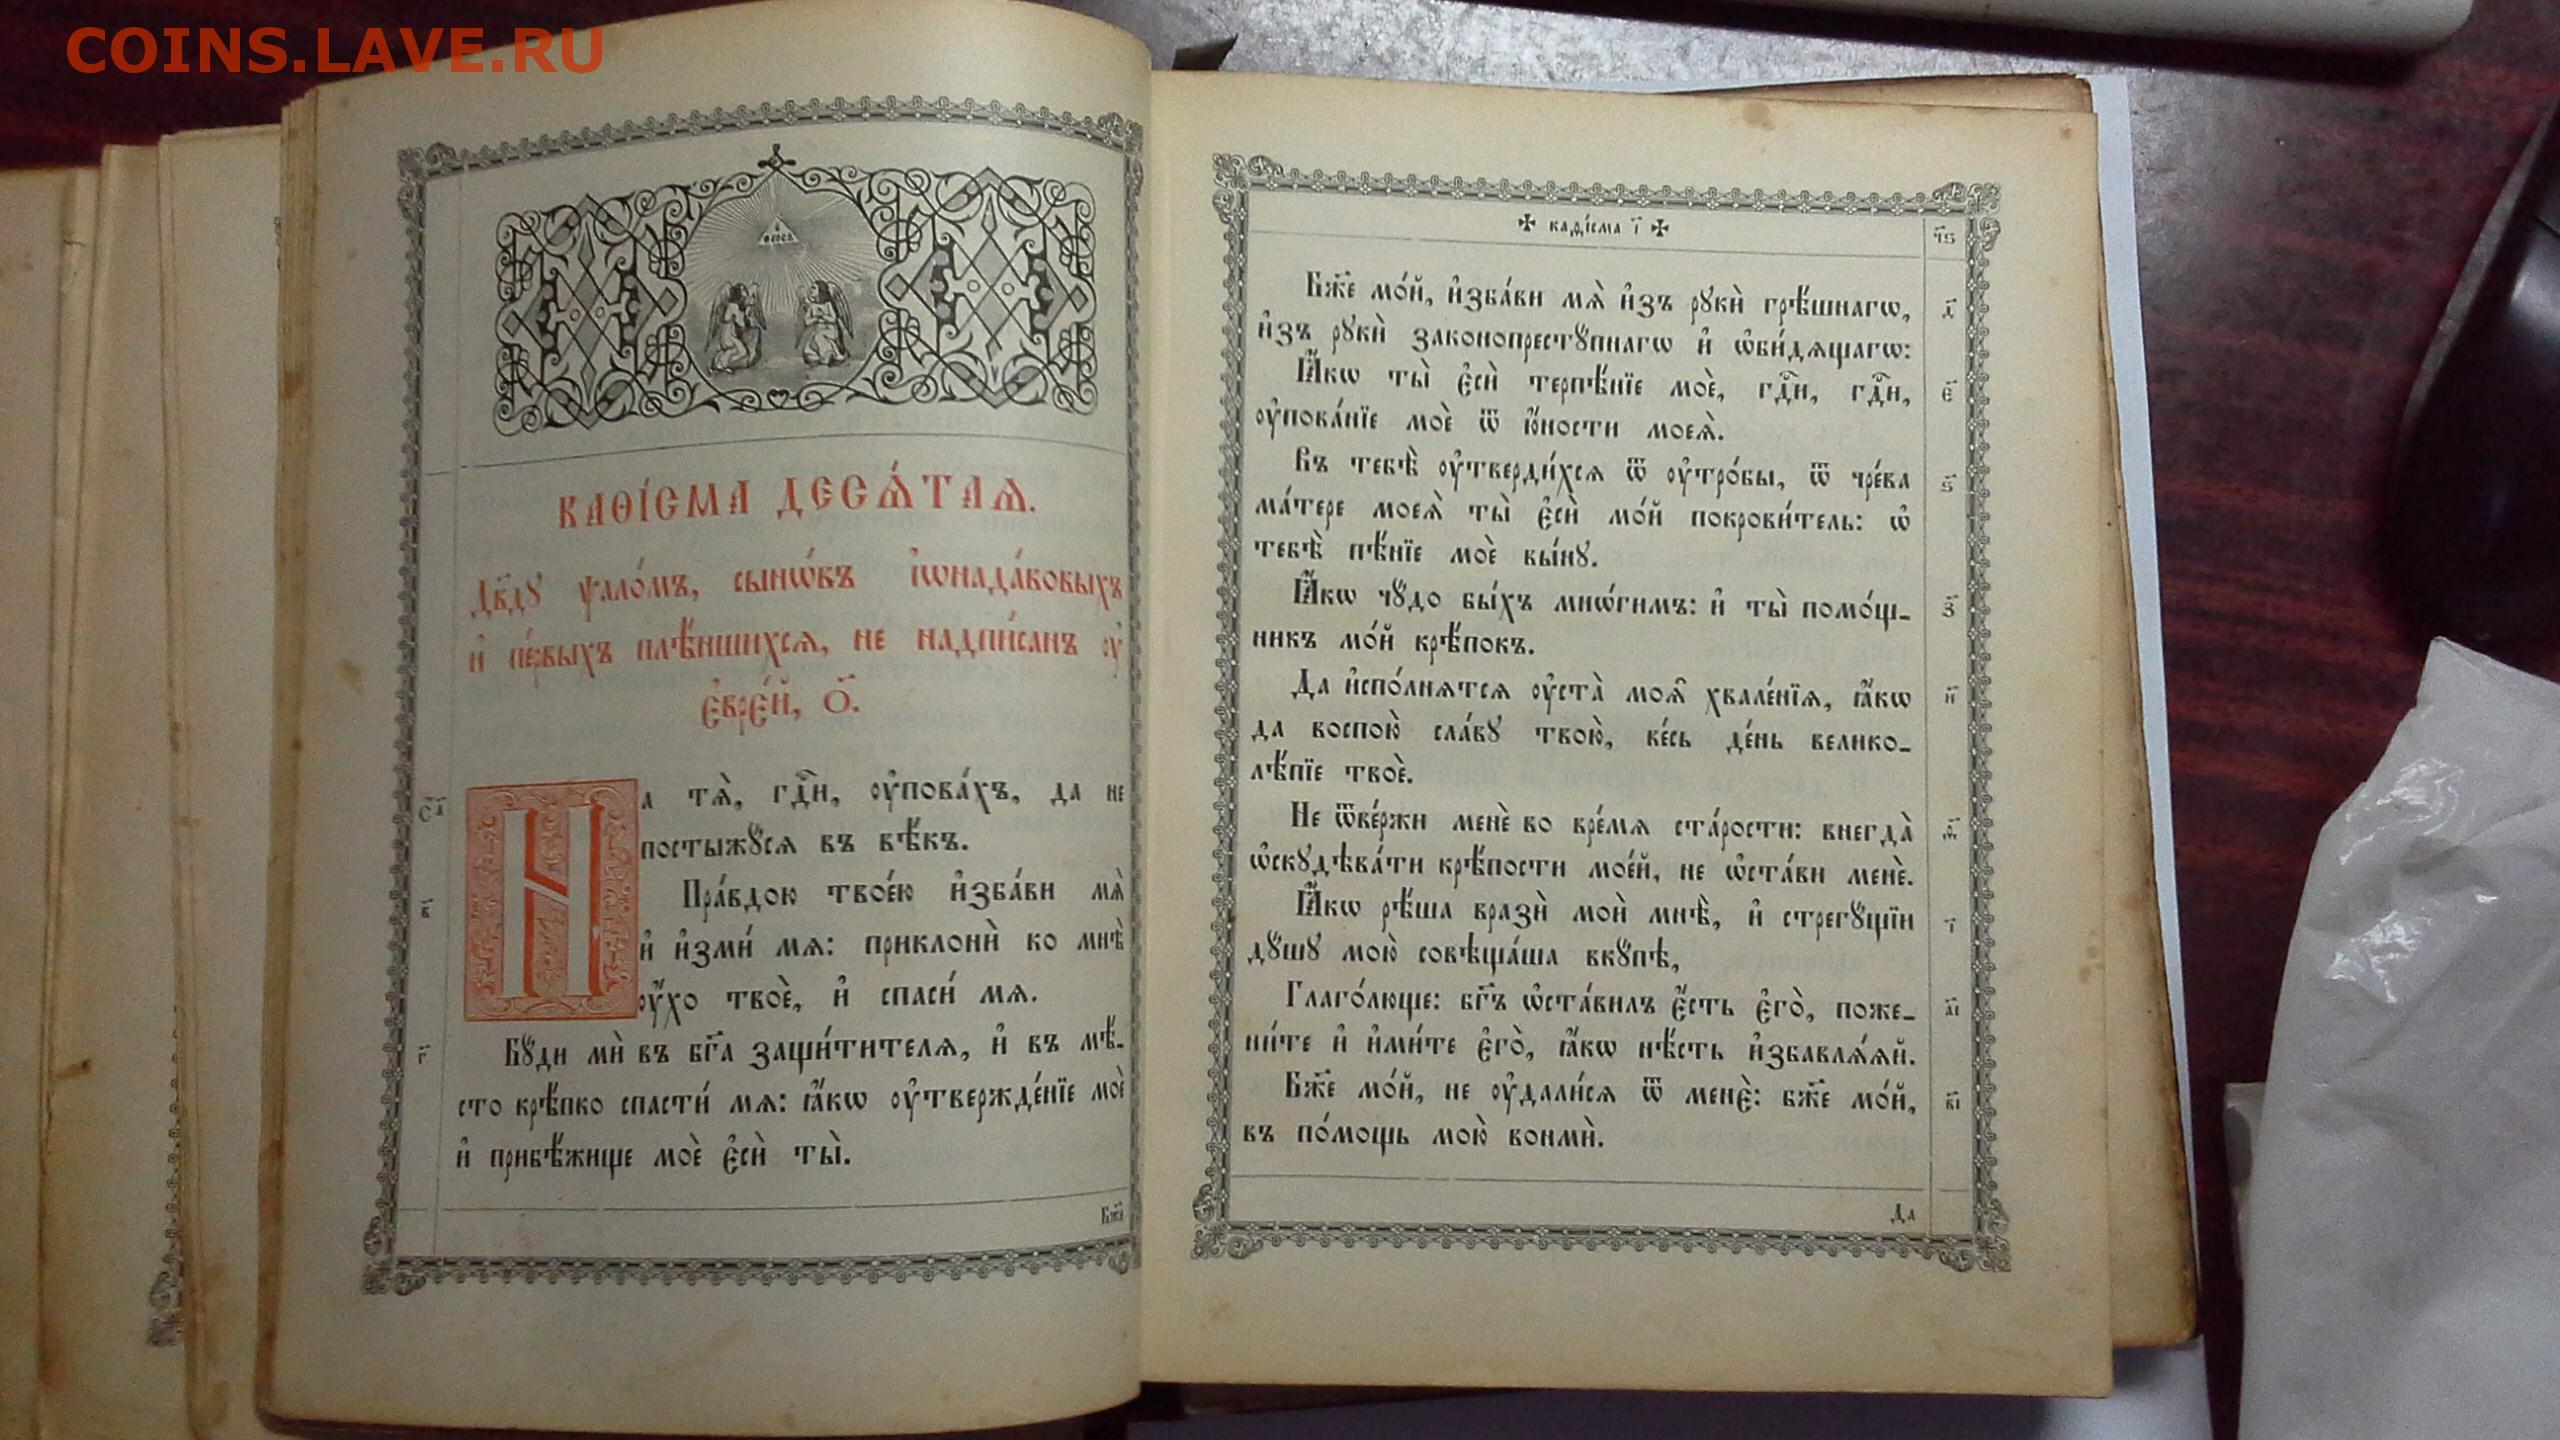 COINS.LAVE.RU
КАѲІ́СМА ДЕСѦ́ТАѦ.
Дв҃дꙋ ѱало́мъ, сынѡ́въ і҆ѡнада́вовыхъ
и҆ пе́рвыхъ плѣ́ншихсѧ, не надпи́санъ ᲂу҆
є҆вре́й, о҃.
На тѧ̀, гдⷭ҇и, ᲂу҆пова́хъ, да не
постыжꙋ́сѧ въ вѣ́къ.
Пра́вдою твое́ю и҆зба́ви мѧ̀
и҆ и҆зми́ мѧ: приклонѝ ко мнѣ̀
ᲂу҆́хо твоѐ, и҆ спаси́ мѧ.
Бꙋ́ди мѝ въ бг҃а защи́тителѧ, и҆ въ мѣ́-
сто крѣ́пко спасти́ мѧ: ꙗ҆́кѡ ᲂу҆твержде́нїе моѐ
и҆ прибѣ́жище моѐ є҆сѝ ты̀.
с҃і
в҃
г҃
Бж҃е
✠ каѳі́сма і҃ ✠
ч҃ѕ
Бж҃е мо́й, и҆зба́ви мѧ̀ и҆зъ рꙋкѝ грѣ́шнагѡ,
и҆зъ рꙋкѝ законопрестꙋ́пнагѡ и҆ ѡ҆би́дѧщагѡ:
Ꙗ҆́кѡ ты̀ є҆сѝ терпѣ́нїе моѐ, гдⷭ҇и, гдⷭ҇и,
ᲂу҆пова́нїе моѐ ѿ ю҆́ности моеѧ̀.
Въ тебѣ̀ ᲂу҆тверди́хсѧ ѿ ᲂу҆тро́бы, ѿ чре́ва
ма́тере моеѧ̀ ты̀ є҆сѝ мо́й покрови́тель: ѡ҆
тебѣ̀ пѣ́нїе моѐ вы́нꙋ.
Ꙗ҆́кѡ чꙋ́до бы́хъ мнѡ́гимъ: и҆ ты̀ помо́щ-
никъ мо́й крѣ́покъ.
Да и҆спо́лнѧтсѧ ᲂу҆ста̀ моѧ̑ хвале́нїѧ, ꙗ҆́кѡ
да воспою̀ сла́вꙋ твою̀, ве́сь де́нь велико-
лѣ́пїе твоѐ.
Не ѿве́ржи менѐ во вре́мѧ ста́рости: внегда̀
ѡ҆скꙋдѣва́ти крѣ́пости мое́й, не ѡ҆ста́ви менѐ.
Ꙗ҆́кѡ рѣ́ша вразѝ моѝ мнѣ̀, и҆ стрегꙋ́щїи
дꙋ́шꙋ мою̀ совѣща́ша вкꙋ́пѣ,
Глаго́люще: бг҃ъ ѡ҆ста́вилъ є҆́сть є҆го̀, поже-
ни́те и҆ и҆ми́те є҆го̀, ꙗ҆́кѡ нѣ́сть и҆збавлѧ́ѧй.
Бж҃е мо́й, не ᲂу҆дали́сѧ ѿ менє̀: бж҃е мо́й,
въ по́мощь мою̀ вонмѝ.
д҃
є҃
ѕ҃
з҃
и҃
ѳ҃
і҃
а҃і
в҃і
Да